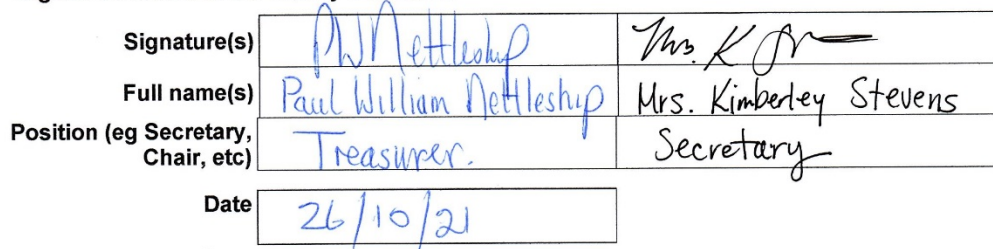 Signature(s) PWNettleship Mrs. K
Full name(s) Paul William Nettleship Mrs. Kimberley Stevens
Position (eg Secretary, Treasurer. Secretary
Chair, etc)
Date 26/10/21